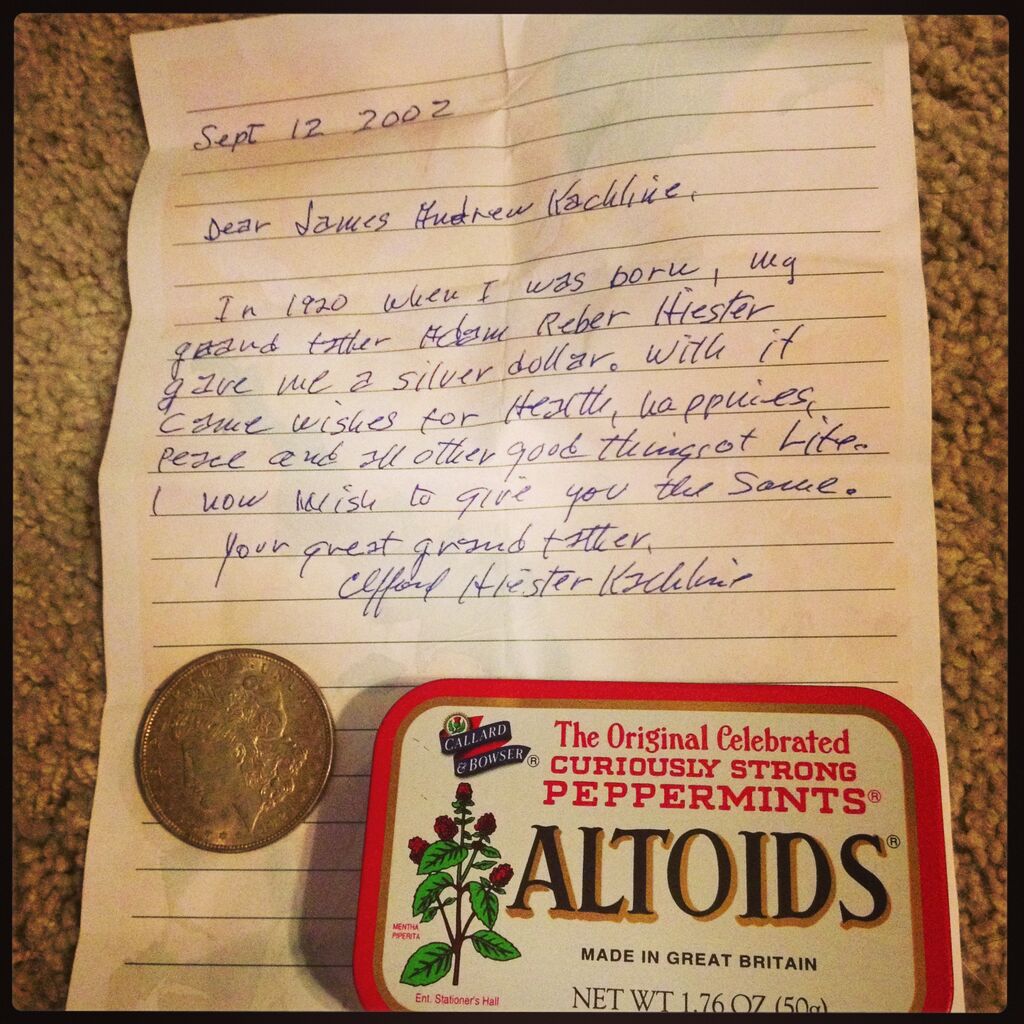 Sept 12 2002
Dear James Andrew Kachline,
In 1920 when I was born, my
grand father Adam Reber Hiester
gave me a silver dollar. With it
came wishes for Health, happines,
peace and all other good things of Life.
I now wish to give you the same.
Your great grand father,
Clifford Hiester Kachline
CALLARD
& BOWSER®
The Original Celebrated
CURIOUSLY STRONG
PEPPERMINTS®
ALTOIDS®
MENTHA
PIPERITA
MADE IN GREAT BRITAIN
Ent. Stationer's Hall
NET WT 1.76 OZ (50g)